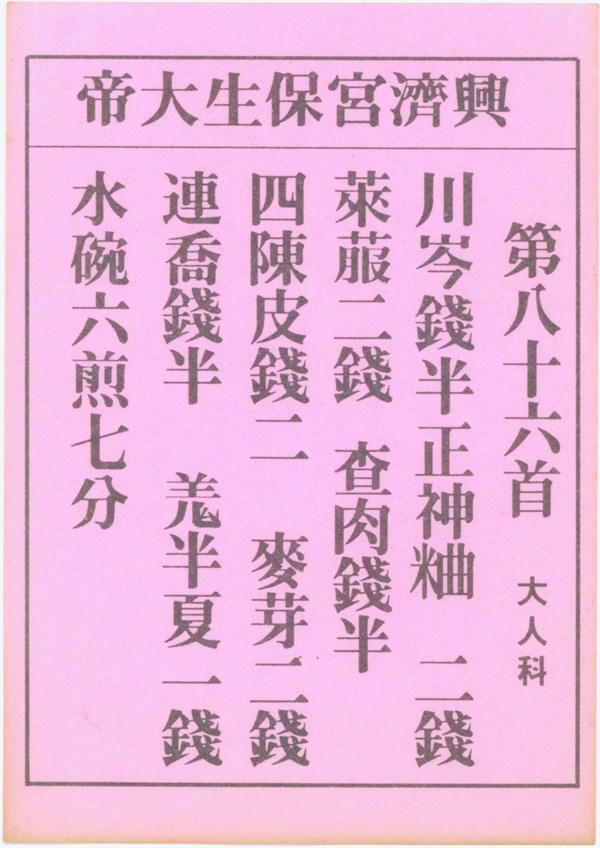 興濟宮保生大帝
第八十六首 大人科
川岑錢半正神粬 二錢
萊菔二錢 查肉錢半
四陳皮錢二 麥芽二錢
連喬錢半 羗半夏一錢
水碗六煎七分